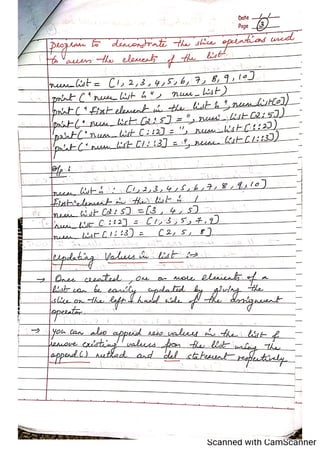 Date
Page 3
Program to demonstrate the slice operations used
to access the elements of the list
num_list = [1, 2, 3, 4, 5, 6, 7, 8, 9, 10]
print ("num_list is", num_list)
print ("First element in the list is", num_list[0])
print ("num_list [2:5] = ", num_list [2:5])
print (" num_list [::2] = ", num_list [::2])
print (" num_list [1::3] = ", num_list [1::3])
o/p :
num_list is : [1, 2, 3, 4, 5, 6, 7, 8, 9, 10]
First element in the list is 1
num_list [2:5] = [3, 4, 5]
num_list [::2] = [1, 3, 5, 7, 9]
num_list [1::3] = [2, 5, 8]
Updating Values in list :→
→ Once created, one or more elements of a
list can be easily updated by giving the
slice on the left hand side of the assignment
operator.
→ you can also append new values in the list &
remove existing values from the list using the
append() method and del statement respectively.
Scanned with CamScanner